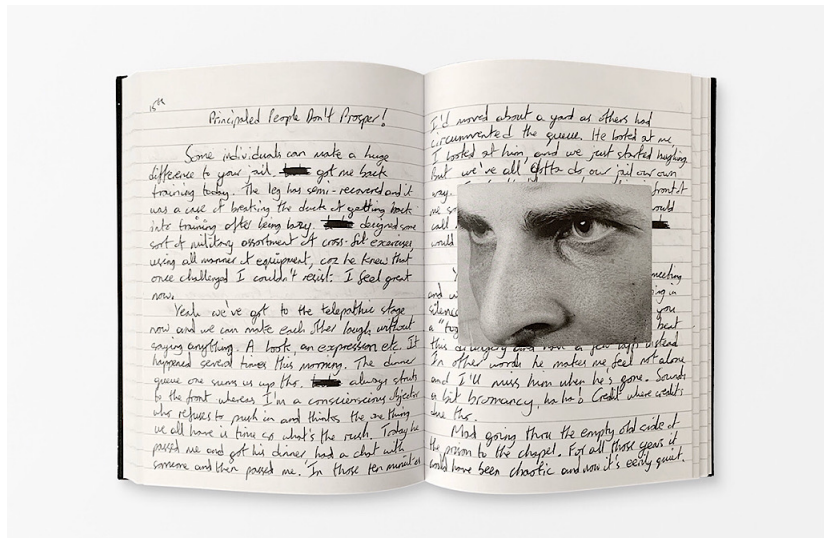 15th
Principaled People Don't Prosper!
Some individuals can make a huge
difference to your jail. got me back
training today. The leg has semi-recovered and it
was a case of breaking the duck of getting back
into training after being lazy. designed some
sort of military assortment of cross-fit exercises
using all manner of equipment, coz he knew that
once challenged I couldn't resist. I feel great
now.
Yeah we've got to the telepathic stage
now and we can make each other laugh without
saying anything. A look, an expression etc. It
happened several times this morning. The dinner
queue one sums us up tho. always struts
to the front whereas I'm a conscienscious objector
who refuses to push in and thinks the one thing
we all have is time so what's the rush. Today he
passed me and got his dinner, had a chat with
someone and then passed me. In those ten minutes
I'd moved about a yard as others had
circumvented the queue. He looted at me,
I looted at him, and we just started laughing.
But we've all gotta do our jail our own
way.
front of
me
would
call
would
meeting
and
in
silence
you
a
beat
this
a few instead
In other words he makes me feel not alone
and I'll miss him when he's gone. Sounds
a bit bromancy, ha ha! Credit where credit's
due tho.
Mad going thru the empty old side of
the prison to the chapel. For all those years it
would have been chaotic and now it's eerily quiet.